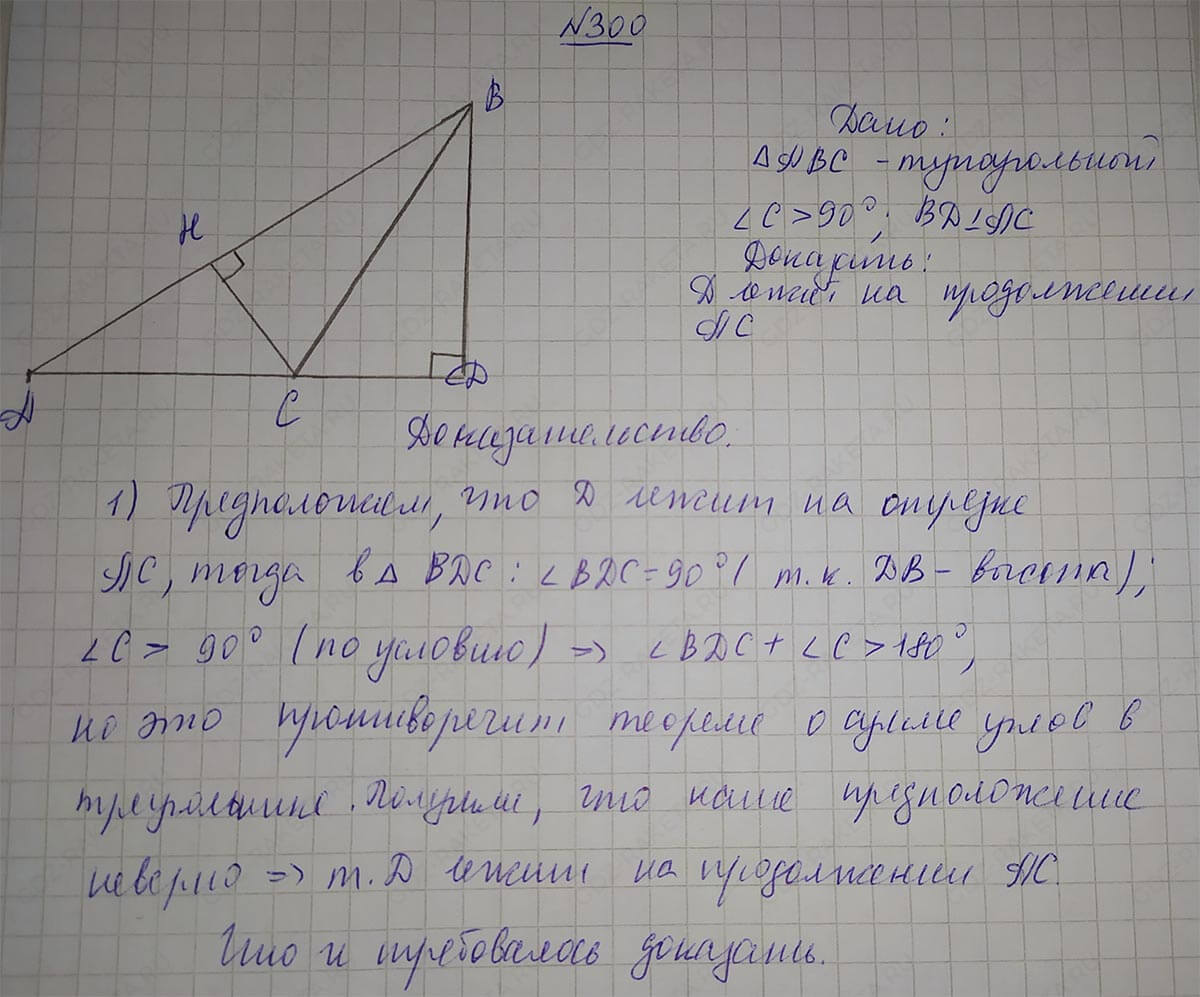 №300
B
Дано:
△ABC - тупоугольный
∠C > 90°; BD⊥AC
H
Доказать:
D лежит на продолжении
AC
A
C
D
Доказательство.
1) Предположим, что D лежит на отрезке
AC, тогда в △ BDC: ∠BDC=90° ( т.к. DB - высота);
∠C > 90° (по условию) => ∠BDC + ∠C > 180°,
но это противоречит теореме о сумме углов в
треугольнике. Получили, что наше предположение
неверно => т. D лежит на продолжении AC.
Что и требовалось доказать.